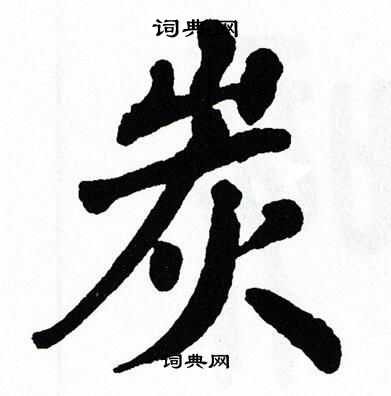 词典网
炭
词典网